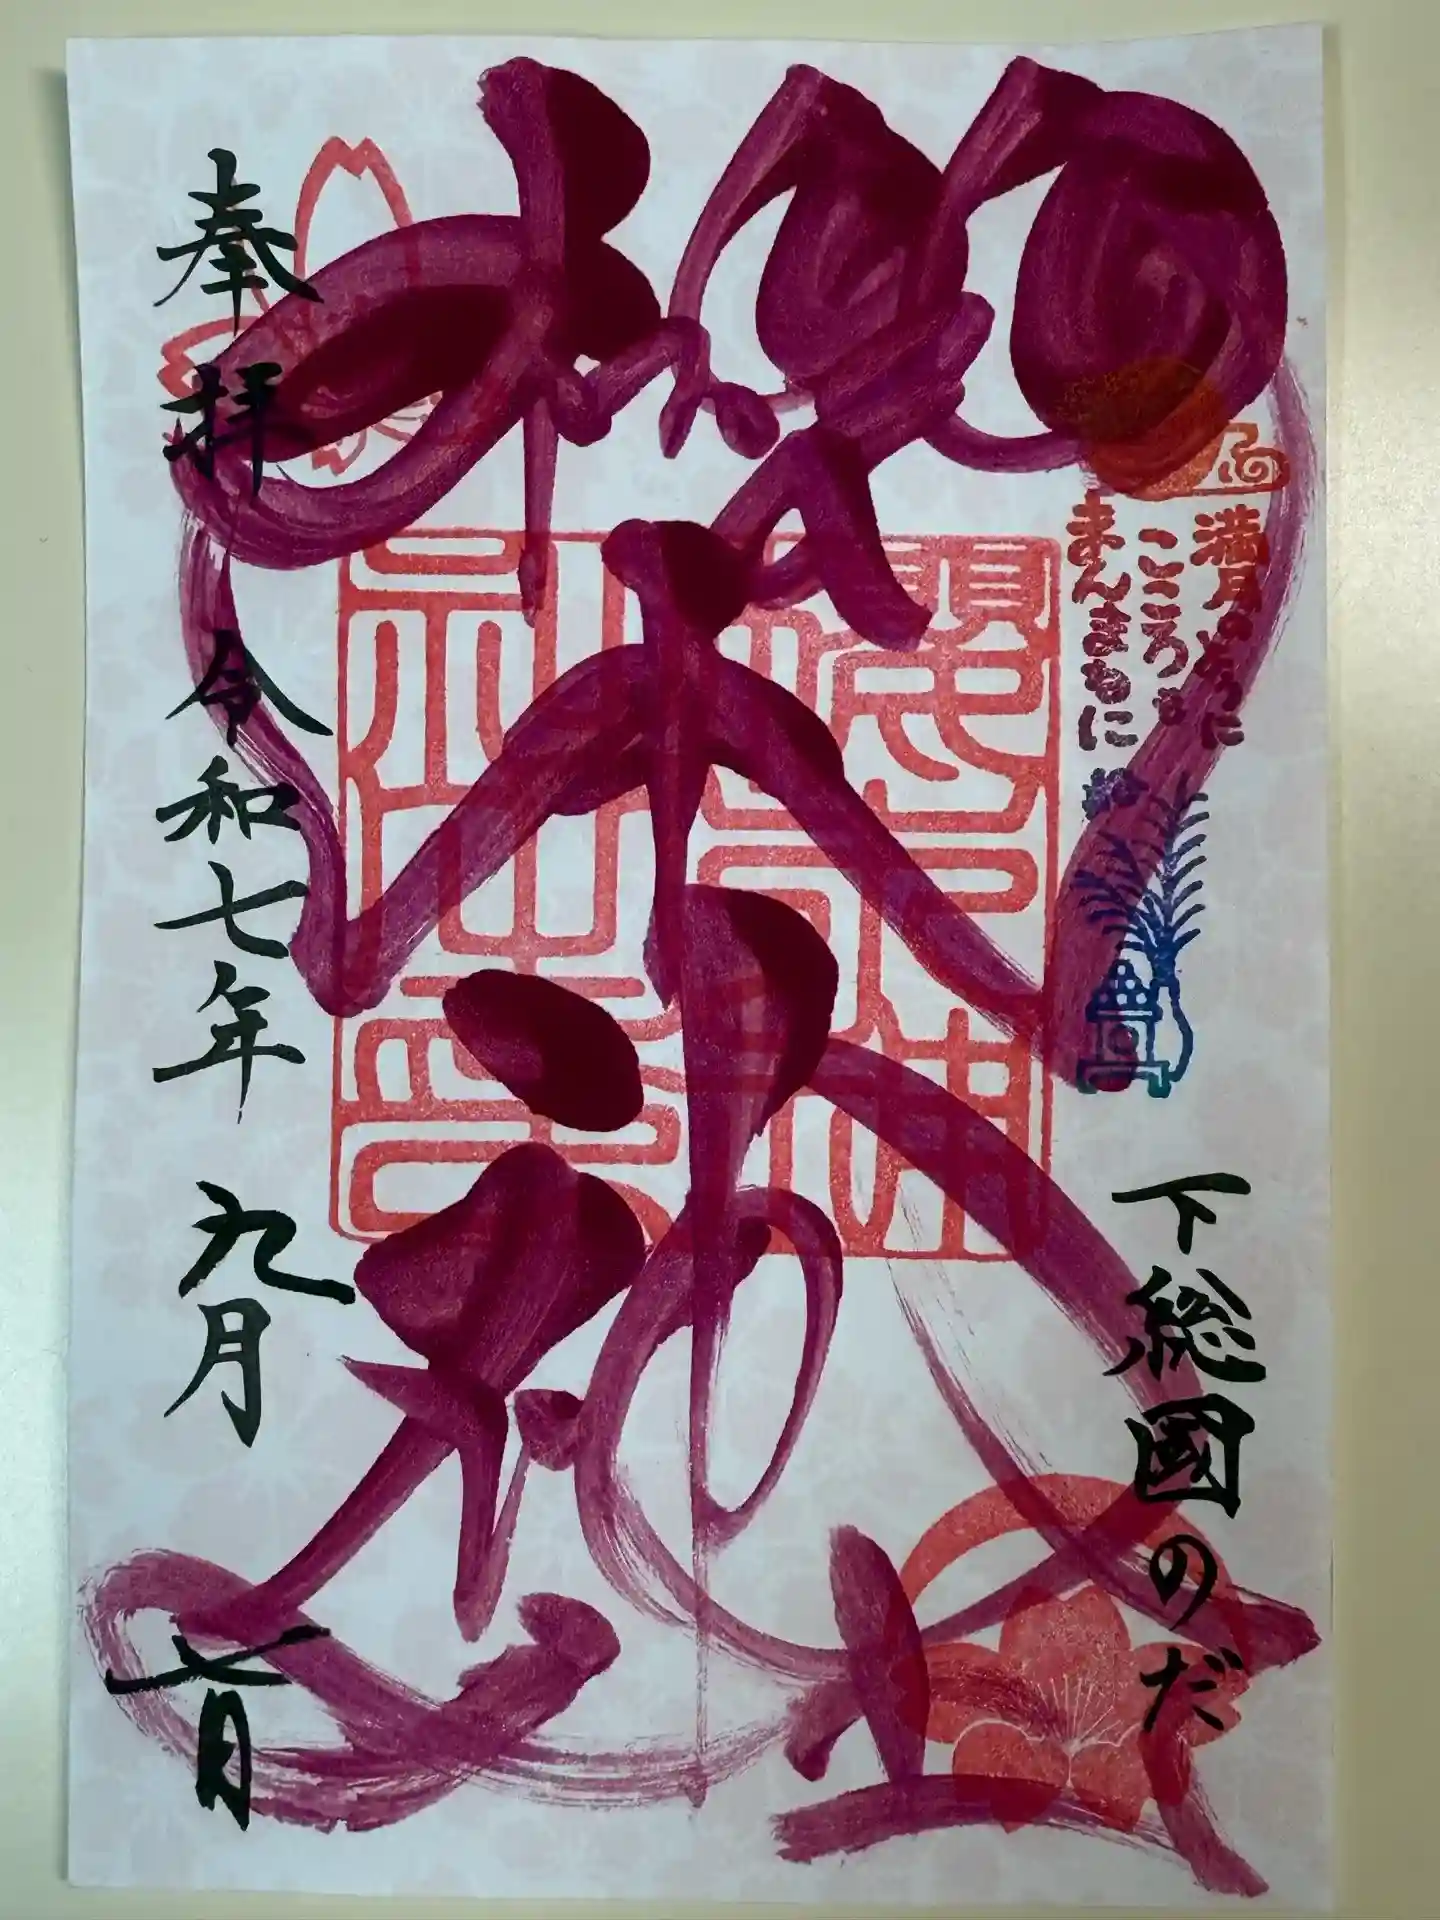 櫻木神社
満月のように
こころも
まんまるに
下総國のだ
奉拝 令和七年 九月 七日